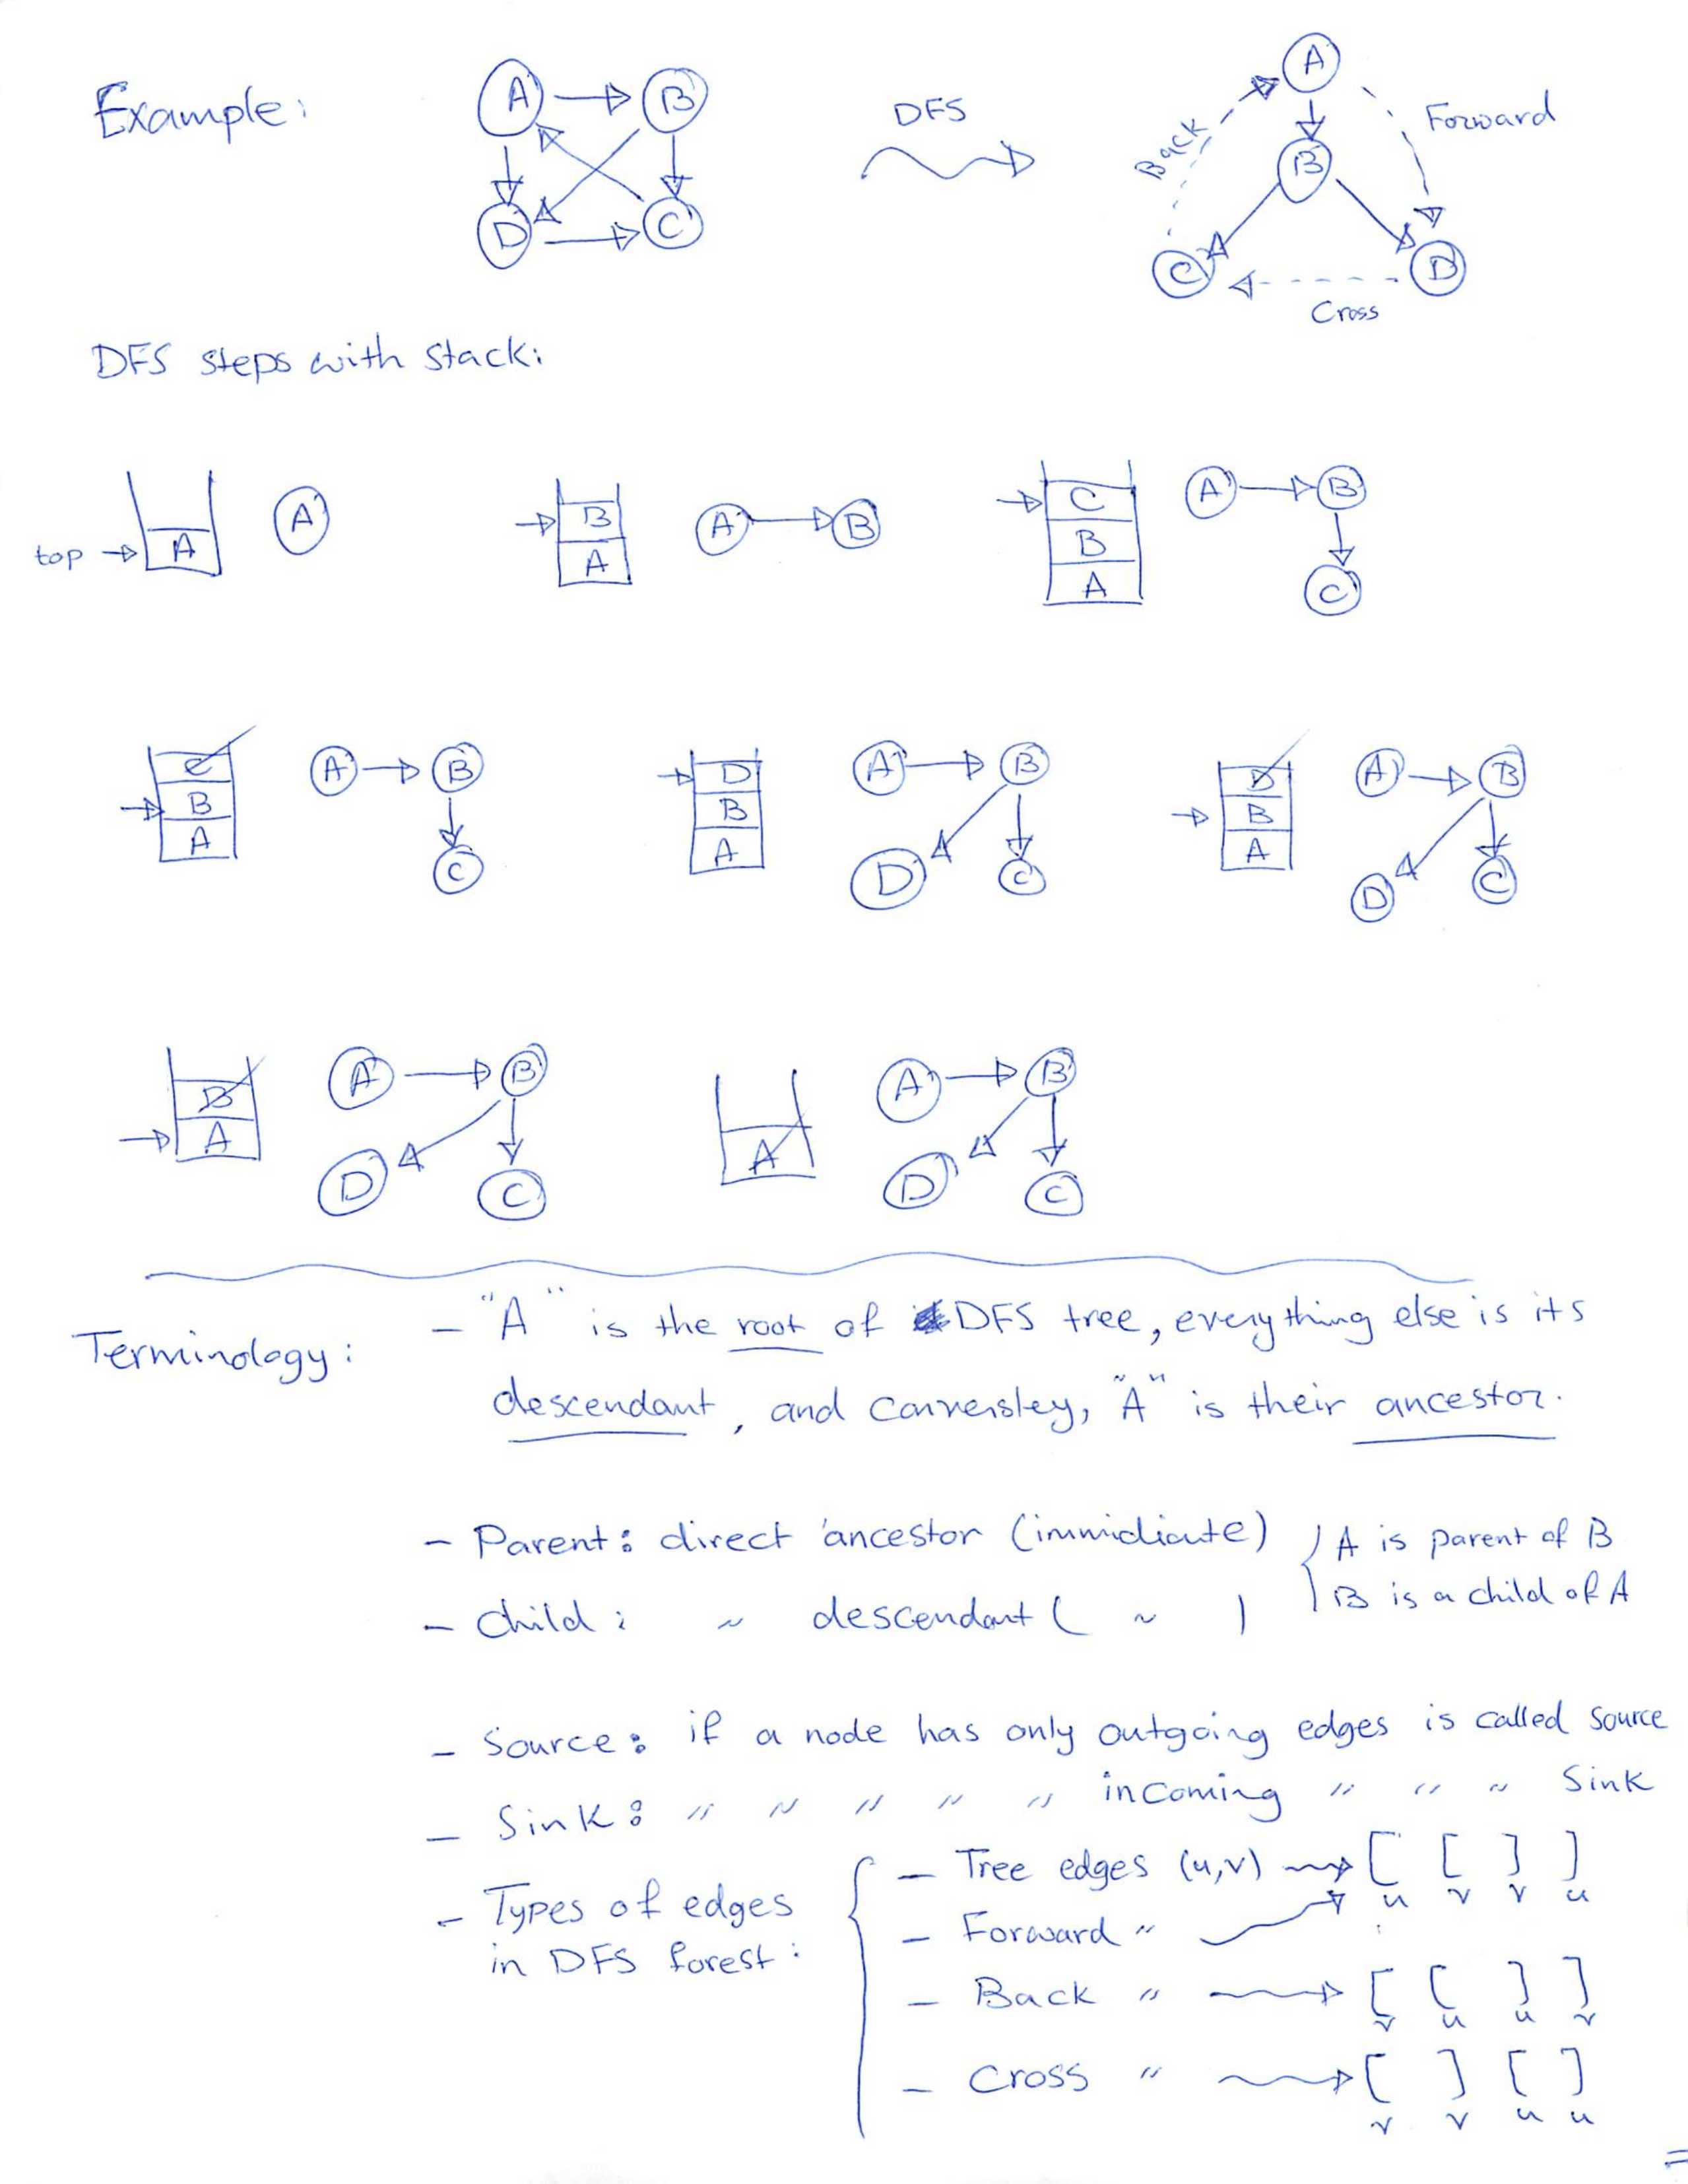 Example:
A B
D C
DFS
A
B
C D
Back
Forward
Cross
DFS steps with stack:
top A
A
B
A
A B
C
B
A
A B
C
C
B
A
A B
C
D
B
A
A B
D C
D
B
A
A B
D C
B
A
A B
D C
A
A B
D C
Terminology:
- "A" is the root of DFS tree, everything else is its
descendant, and conversley, "A" is their ancestor.
- Parent: direct ancestor (immidiate)
- Child: " descendant ( " )
A is parent of B
B is a child of A
- Source: if a node has only outgoing edges is called source
- Sink: " " " " " incoming " " " Sink
- Types of edges
in DFS forest:
- Tree edges (u,v) [ [ ] ]
u v v u
- Forward "
- Back " [ [ ] ]
v u u v
- Cross " [ ] [ ]
v v u u